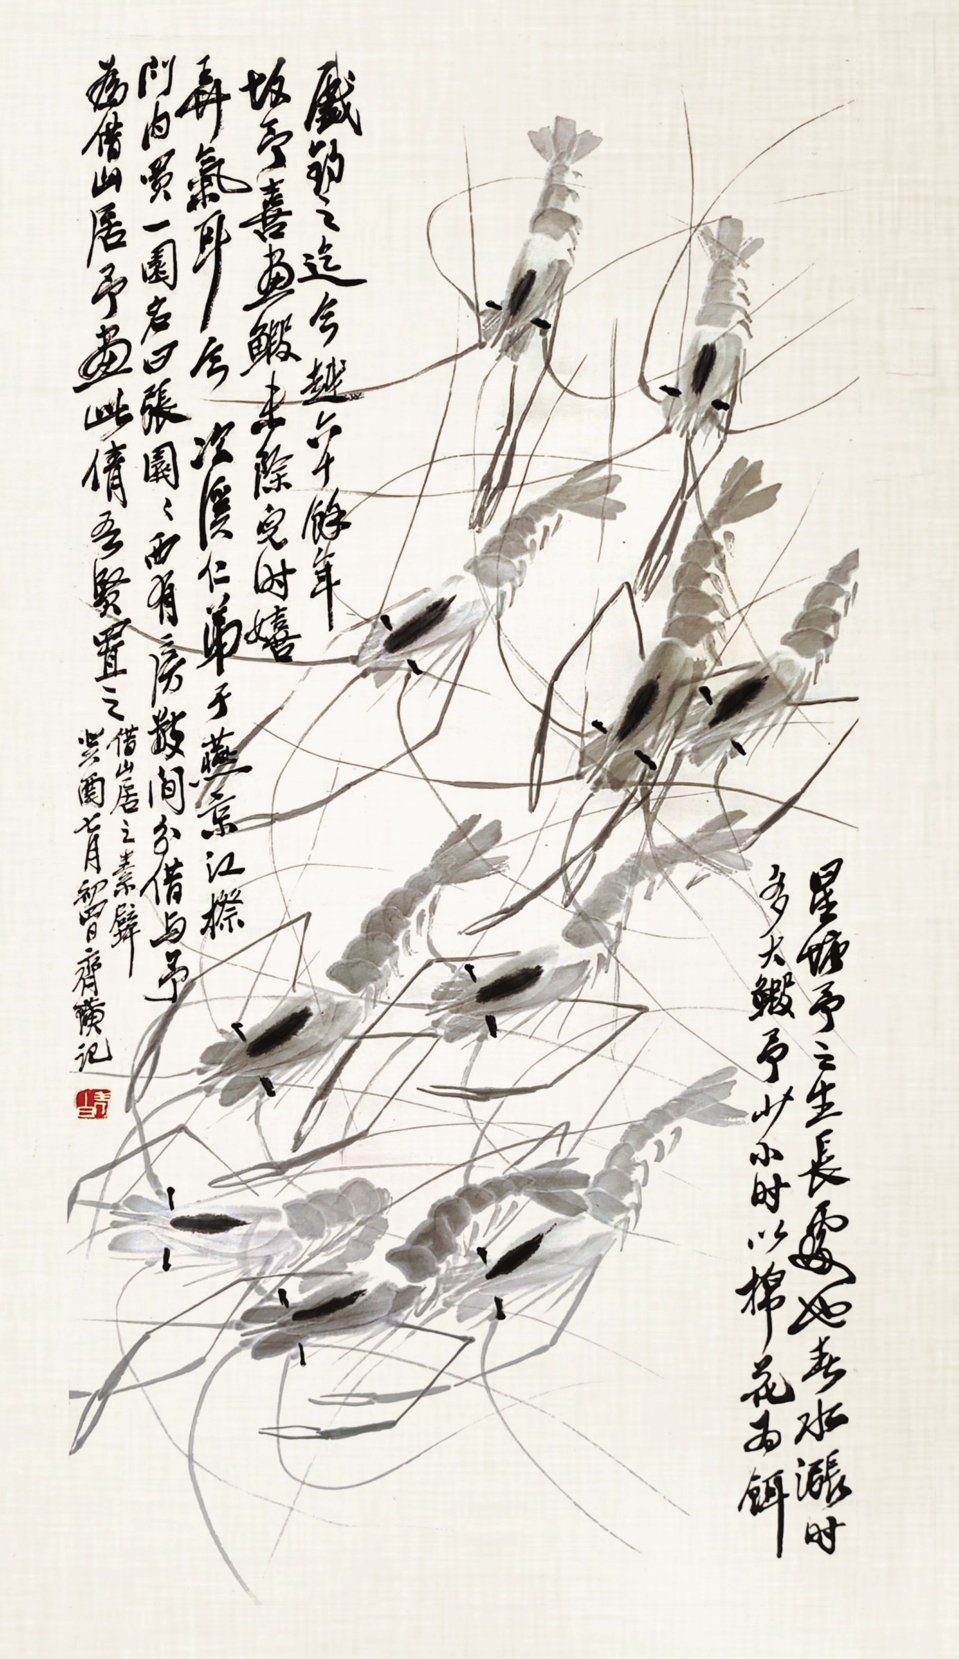 星塘予之生長處也春水漲时
多大鰕予少小时以棉花为餌
戲釣之迄今越六十餘年
故予喜畫鰕未除兒时嬉
弄氣耳今次溪仁弟于燕京江擦
門内買一園名曰張園〻西有房數间分借与予
為借山居予畫此倩吾賢置之
借山居之素壁
癸酉七月初四日齊璜记